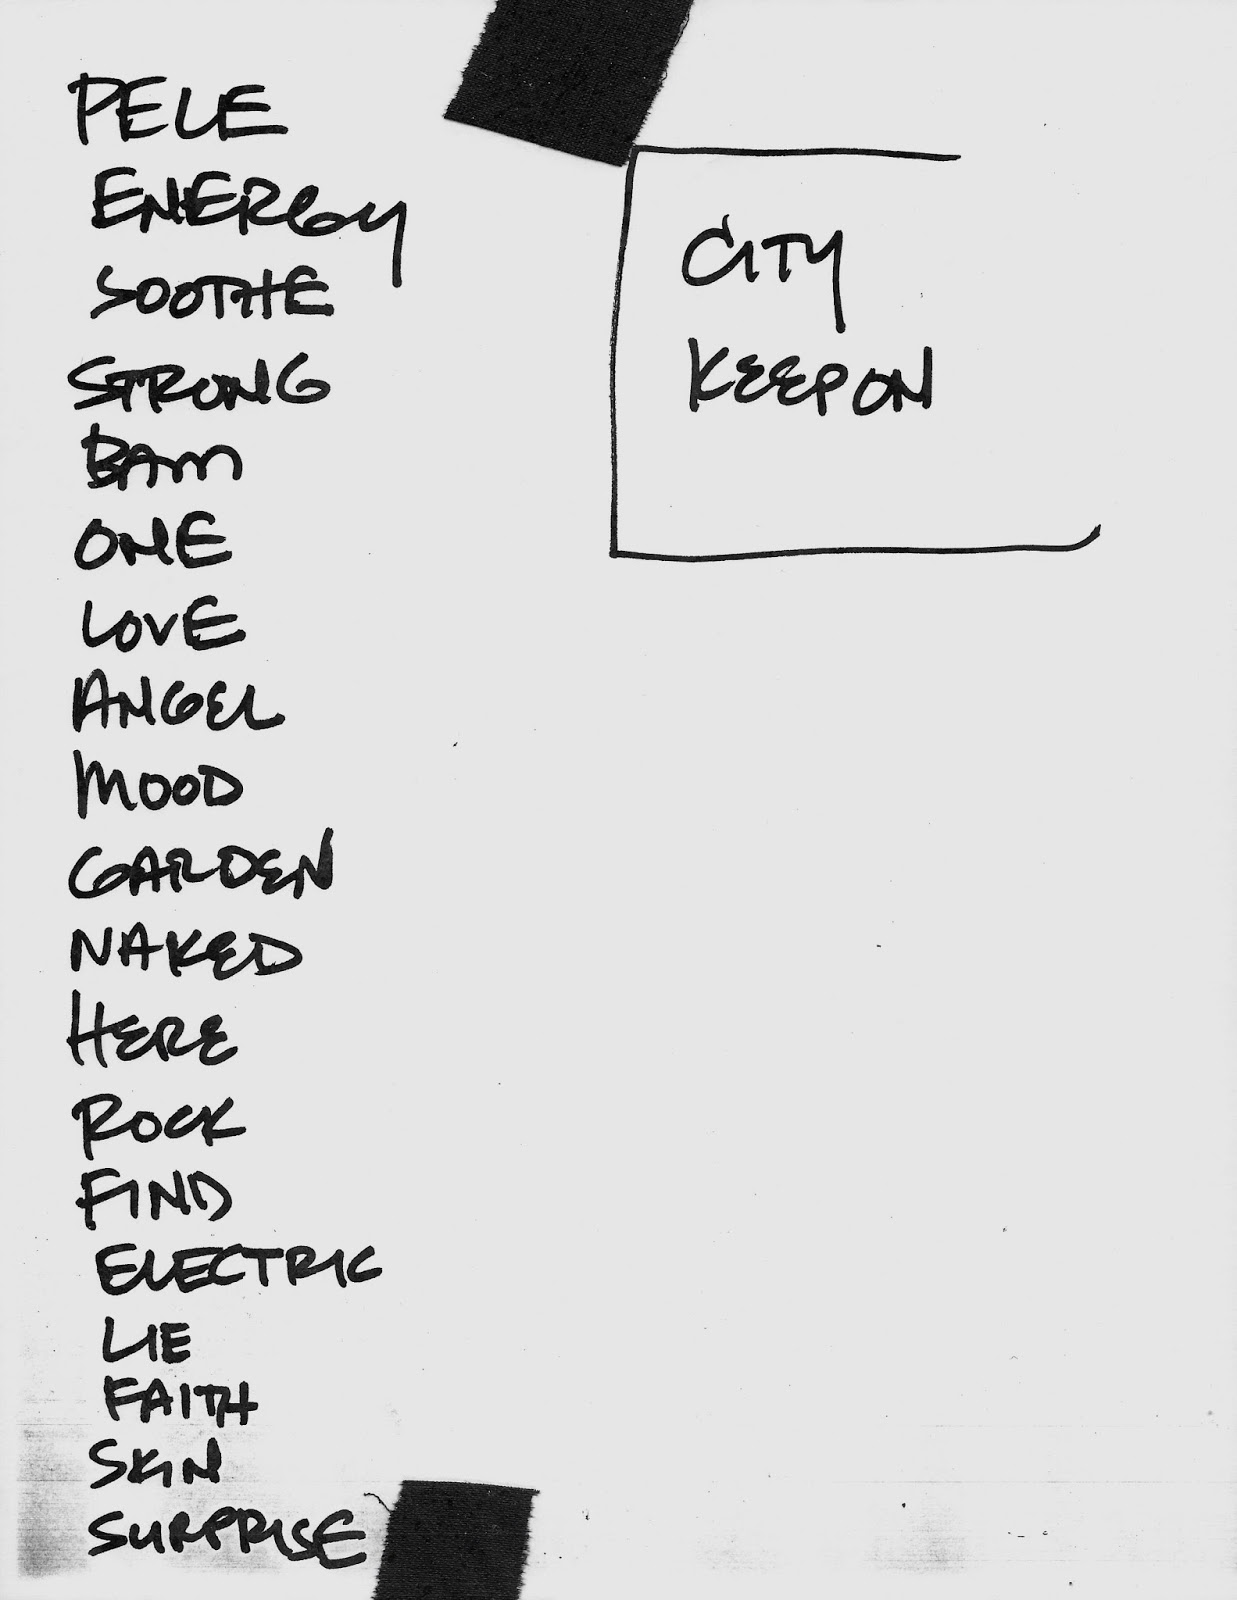 PELE
ENERGY
SOOTHE
STRONG
BAM
ONE
LOVE
ANGEL
MOOD
GARDEN
NAKED
HERE
ROCK
FIND
ELECTRIC
LIE
FAITH
SKIN
SURPRISE
CITY
KEEP ON